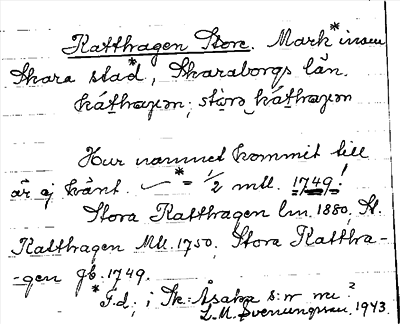 Katthagen Stora. Mark* inom
Skara stad*, Skaraborgs län.
Hur namnet kommit till
är ej känt. — * = 1/2 mtl. 1749!
Stora Katthagen lm. 1880, St.
Katthagen Mtl. 1750, Stora Kattha-
-gen jb. 1749.
* F.d. i Sk. Åsaka s:n nu?
L.M. Svenungsson, 1943.